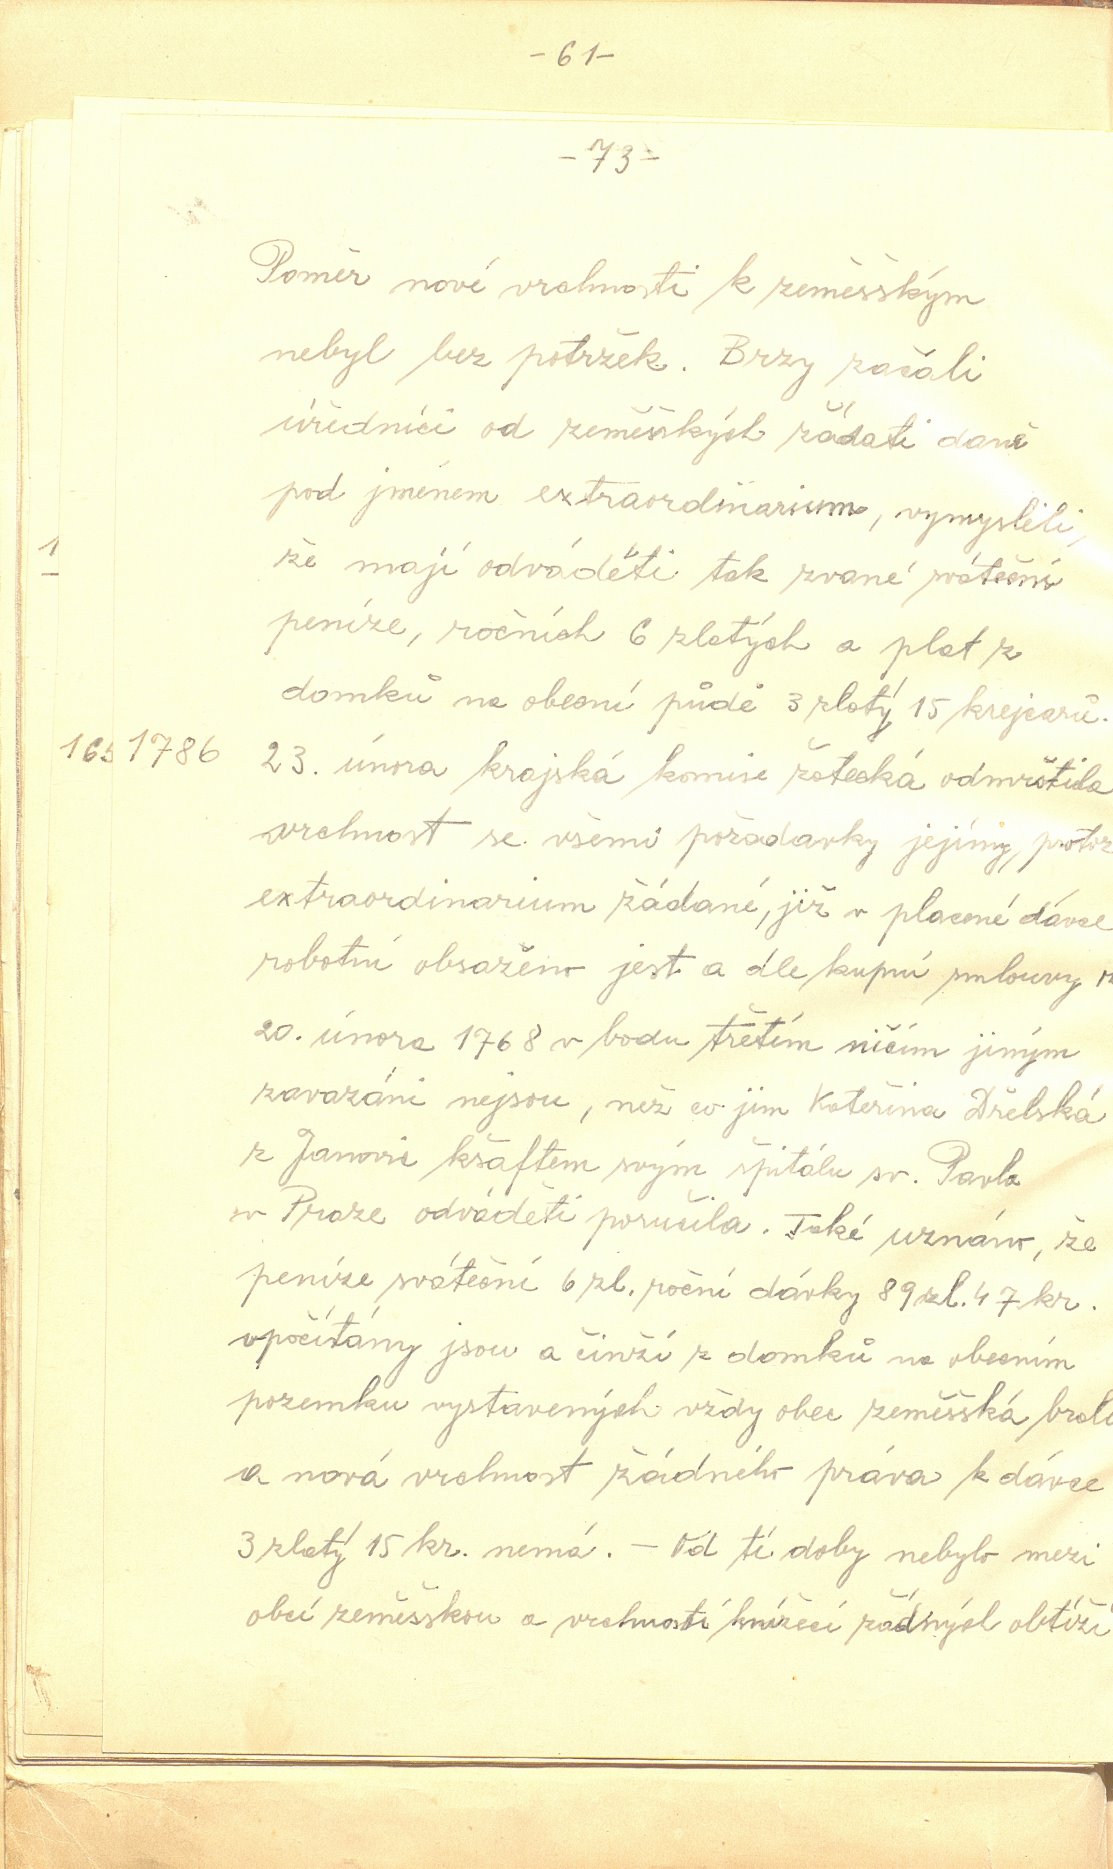 -61-
-73-
Poměr nové vrchnosti k zeměšským
nebyl bez potržek. Brzy začali
úředníci od zeměšských žádati daně
pod jménem extraordinarium, vymyslili,
1
že mají odváděti tak zvané sváteční
peníze, ročních 6 zlatých a plat z
domků na obecní půdě 3 zlatý 15 krejcarů.
165 1786 23. února krajská komise žatecká odmrštila
vrchnost se všemi požadavky jejímy, protož
extraordinarium žádané, již v placené dávce
robotní obsaženo jest a dle kupní smlouvy z
20. února 1768 v bodu třetím ničím jiným
zavazáni nejsou, než co jim Kateřina Dřelská
z Janovic kšaftem svým špitálu sv. Pavla
v Praze odváděti poručila. Také uznáno, že
peníze sváteční 6 zl. roční dávky 89 zl. 47 kr.
vpočítány jsou a činží z domků na obecním
pozemku vystavených vždy obec zeměšská brala
a nová vrchnost žádného práva k dávce
3 zlatý 15 kr. nemá. - Od té doby nebylo mezi
obcí zeměšskou a vrchností knížecí žádných obtíží